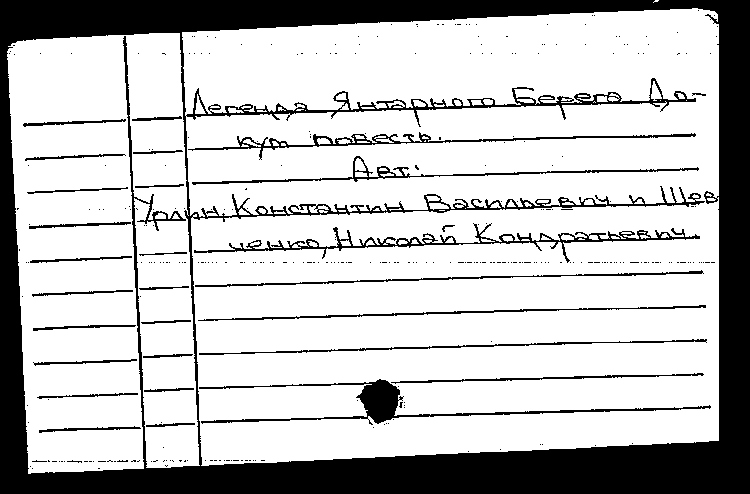 Легенда Янтарного Берега До-
кум повесть.
Авт:
Урлин, Константин Васильевич и Шев
ченко, Николай Кондратьевич.